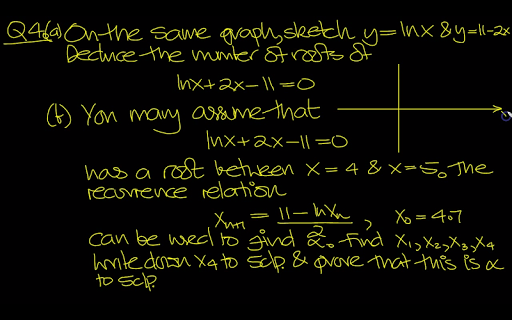 Q4.(a) On the same graph, sketch y = lnx & y = 11-2x
Deduce the number of roots of
lnx + 2x - 11 = 0
(b) You may assume that
lnx + 2x - 11 = 0
has a root between x = 4 & x = 5. The
recurrence relation
xₙ₊₁ = (11 - lnxₙ)/2, x₀ = 4.7
can be used to find α. Find x₁, x₂, x₃, x₄
Write down x₄ to 5dp & prove that this is α
to 5dp